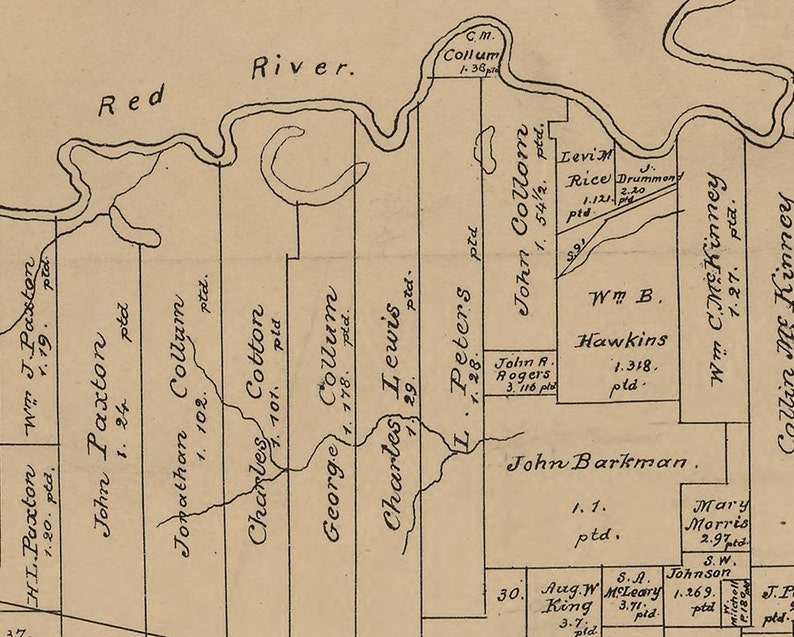 Red River.
C.M.
Collum
1.38 ptd
Wm J. Paxton
1.19. ptd.
H.L. Paxton
1.20. ptd.
John Paxton
1.24. ptd
Jonathan Collum
1.102. ptd.
Charles Cotton
1.101. ptd
George Collum
1.178. ptd.
Charles Lewis
1.29. ptd.
L. Peters
1.28. ptd
John Collom
1.54½. ptd.
Levi M
Rice
1.121.
ptd.
J.
Drummond
2.20
ptd
S.91
Wm B.
Hawkins
1.318.
ptd.
Wm C. McKinney
1.27. ptd.
Collin McKinney
John R.
Rogers
3.116 ptd
John Barkman.
1.1.
ptd.
Mary
Morris
2.97 ptd.
S.W.
Johnson
1.269.
ptd
30.
Aug. W
King
3.7. ptd
S.A.
McLeary
3.71.
ptd.
J.P
ptd.
37.